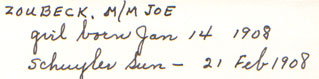 ZOUBECK, M/M JOE
gril born Jan 14 1908
Schuyler Sun - 21 Feb 1908